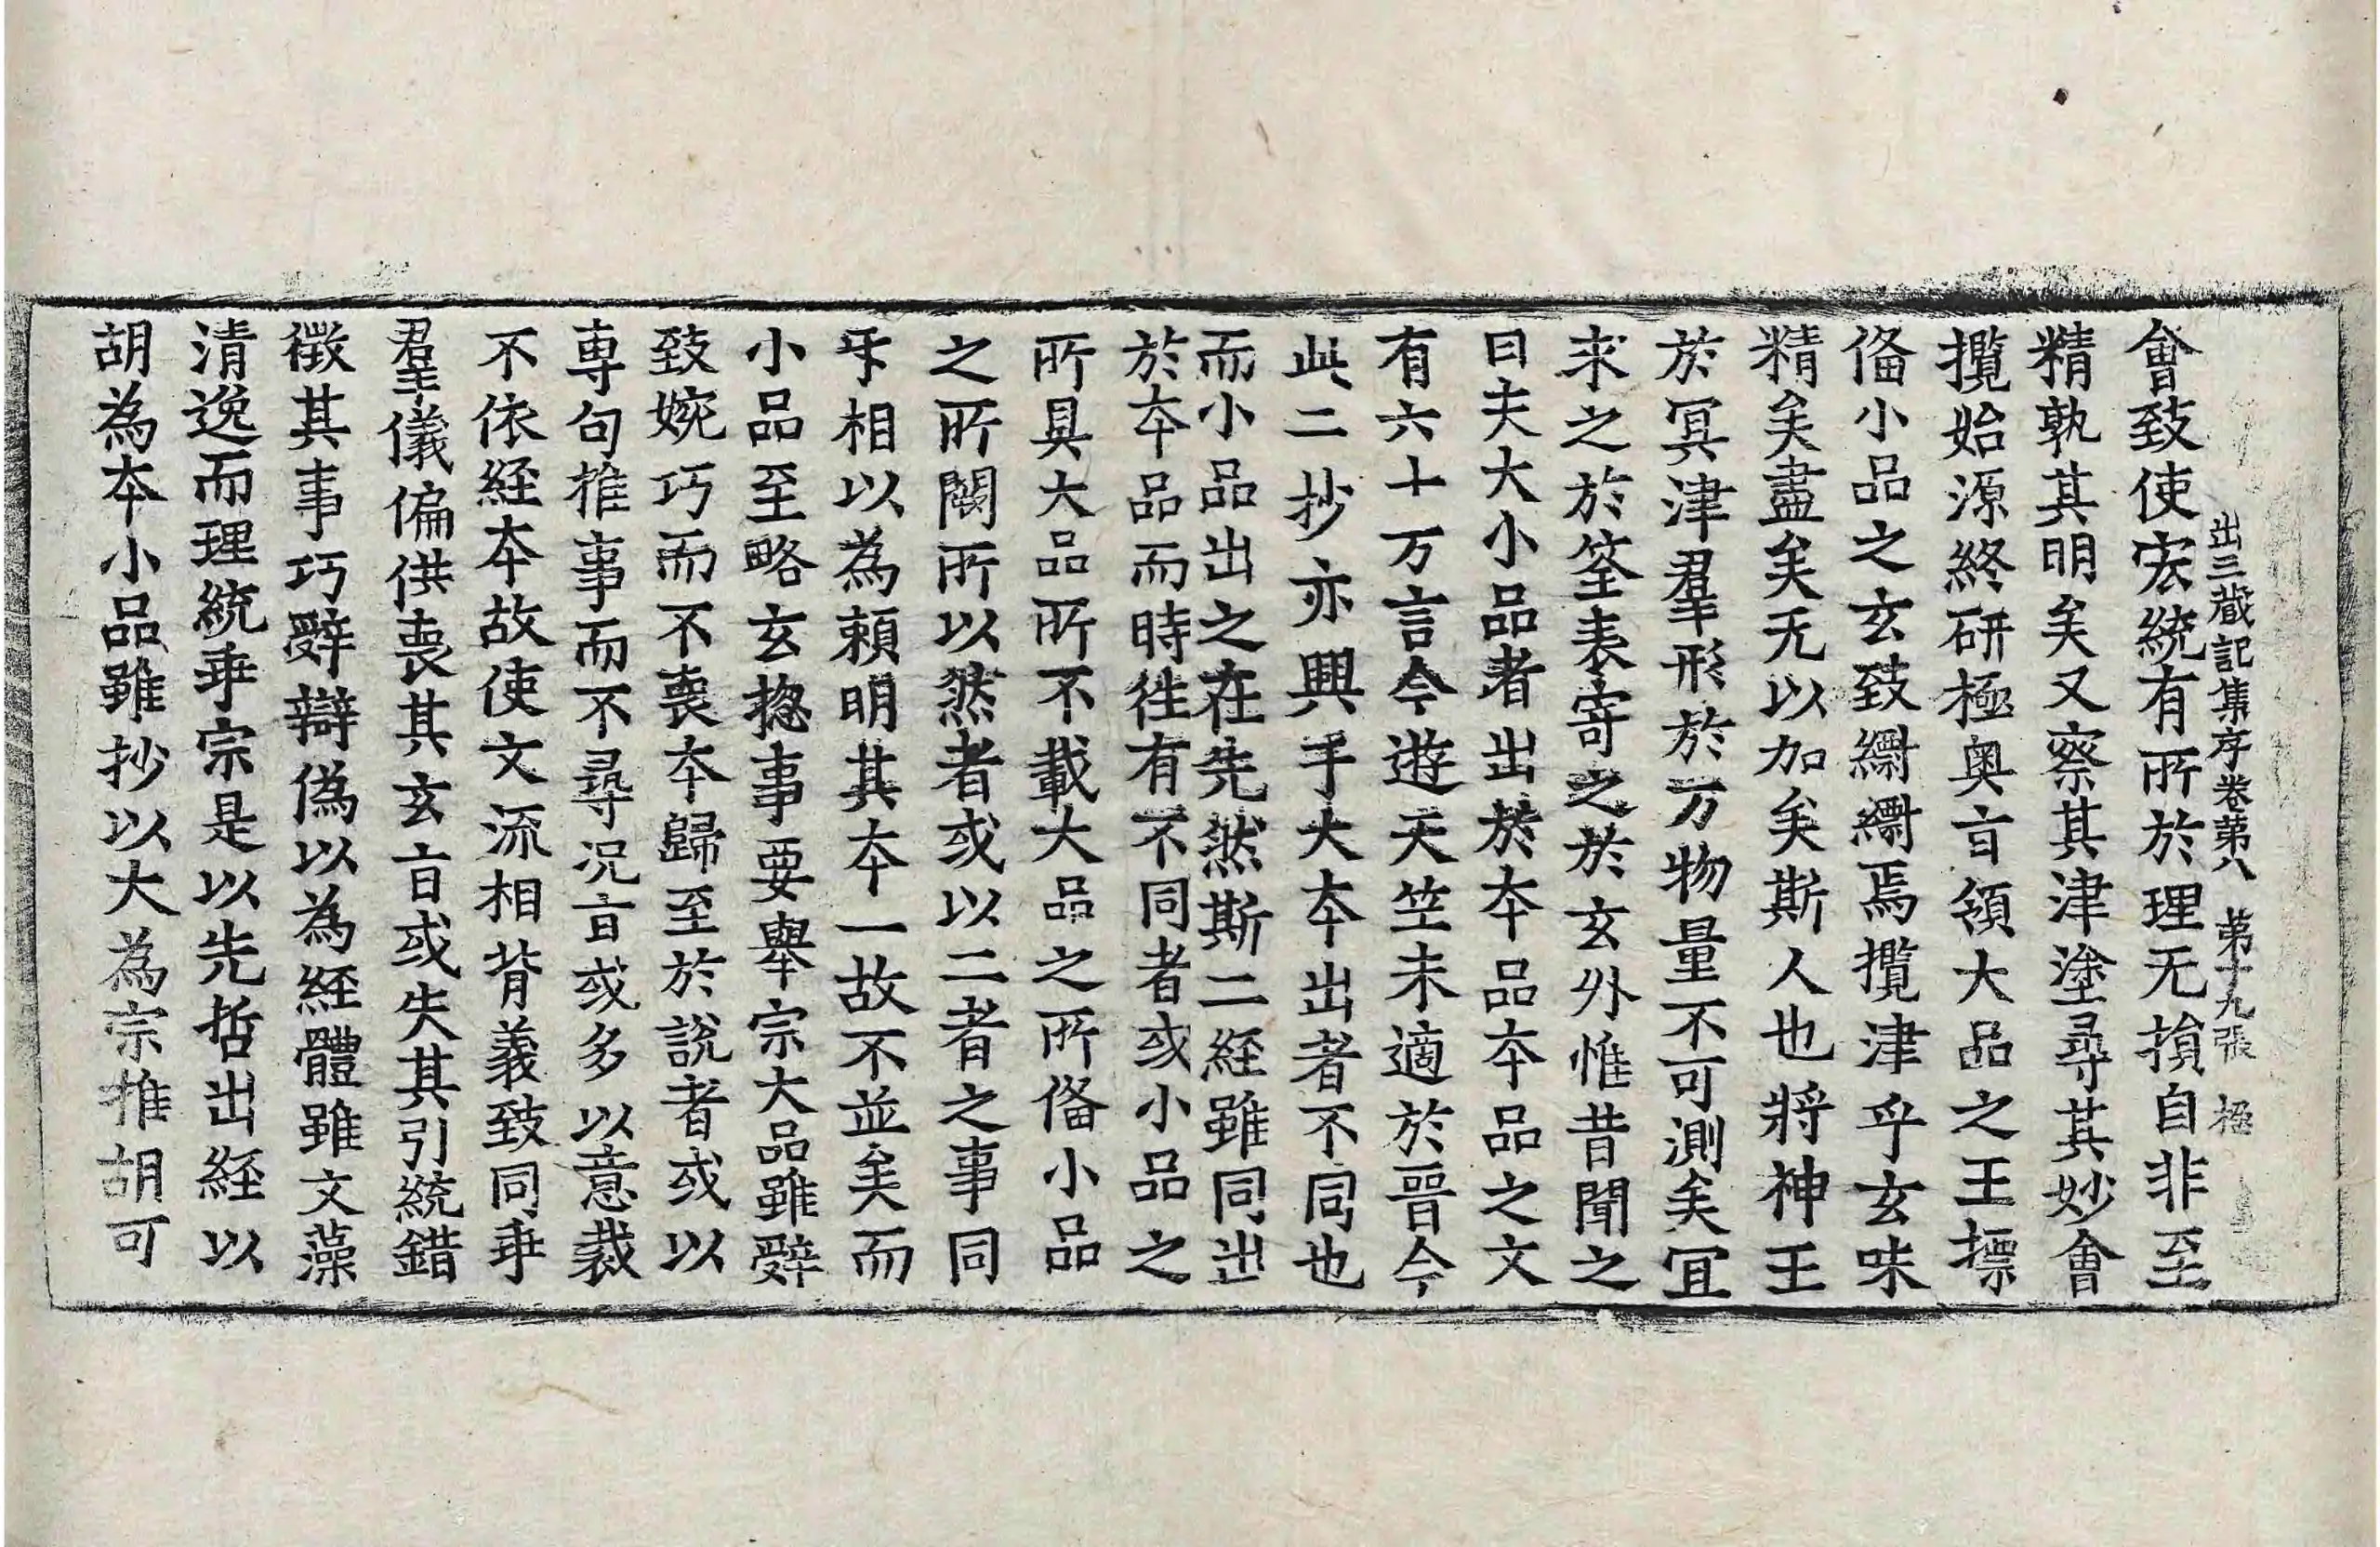 出三藏記集序卷苐八　苐十九張　極
會致使宏統有所於理无損自非至
精孰其明矣又察其津塗尋其妙會
攬始源終研極奥㫖領大品之王摽
俻小品之玄致緭緭焉攬津乎玄味
精矣盡矣无以加矣斯人也將神王
於冥津羣形於万物量不可測矣冝
求之於筌表寄之於玄外惟昔聞之
曰夫大小品者出於夲品夲品之文
有六十万言今遊天竺未適於晋今
此二抄亦興手大夲出者不同也
而小品出之在先然斯二経雖同出
於夲品而時往有不同者或小品之
所具大品所不載大品之所俻小品
之所闕所以然者或以二者之事同
㸦相以為頼明其夲一故不並矣而
小品至略玄揔事要舉宗大品雖辝
致婉巧而不喪夲歸至於說者或以
専句推事而不尋况㫖或多以意裁
不依経夲故使文流相背義致同乖
羣儀偏供喪其玄㫖或失其引統錯
徵其事巧辝辯偽以為経體雖文藻
清逸而理統乖宗是以先哲出経以
胡為夲小品雖抄以大為宗推胡可